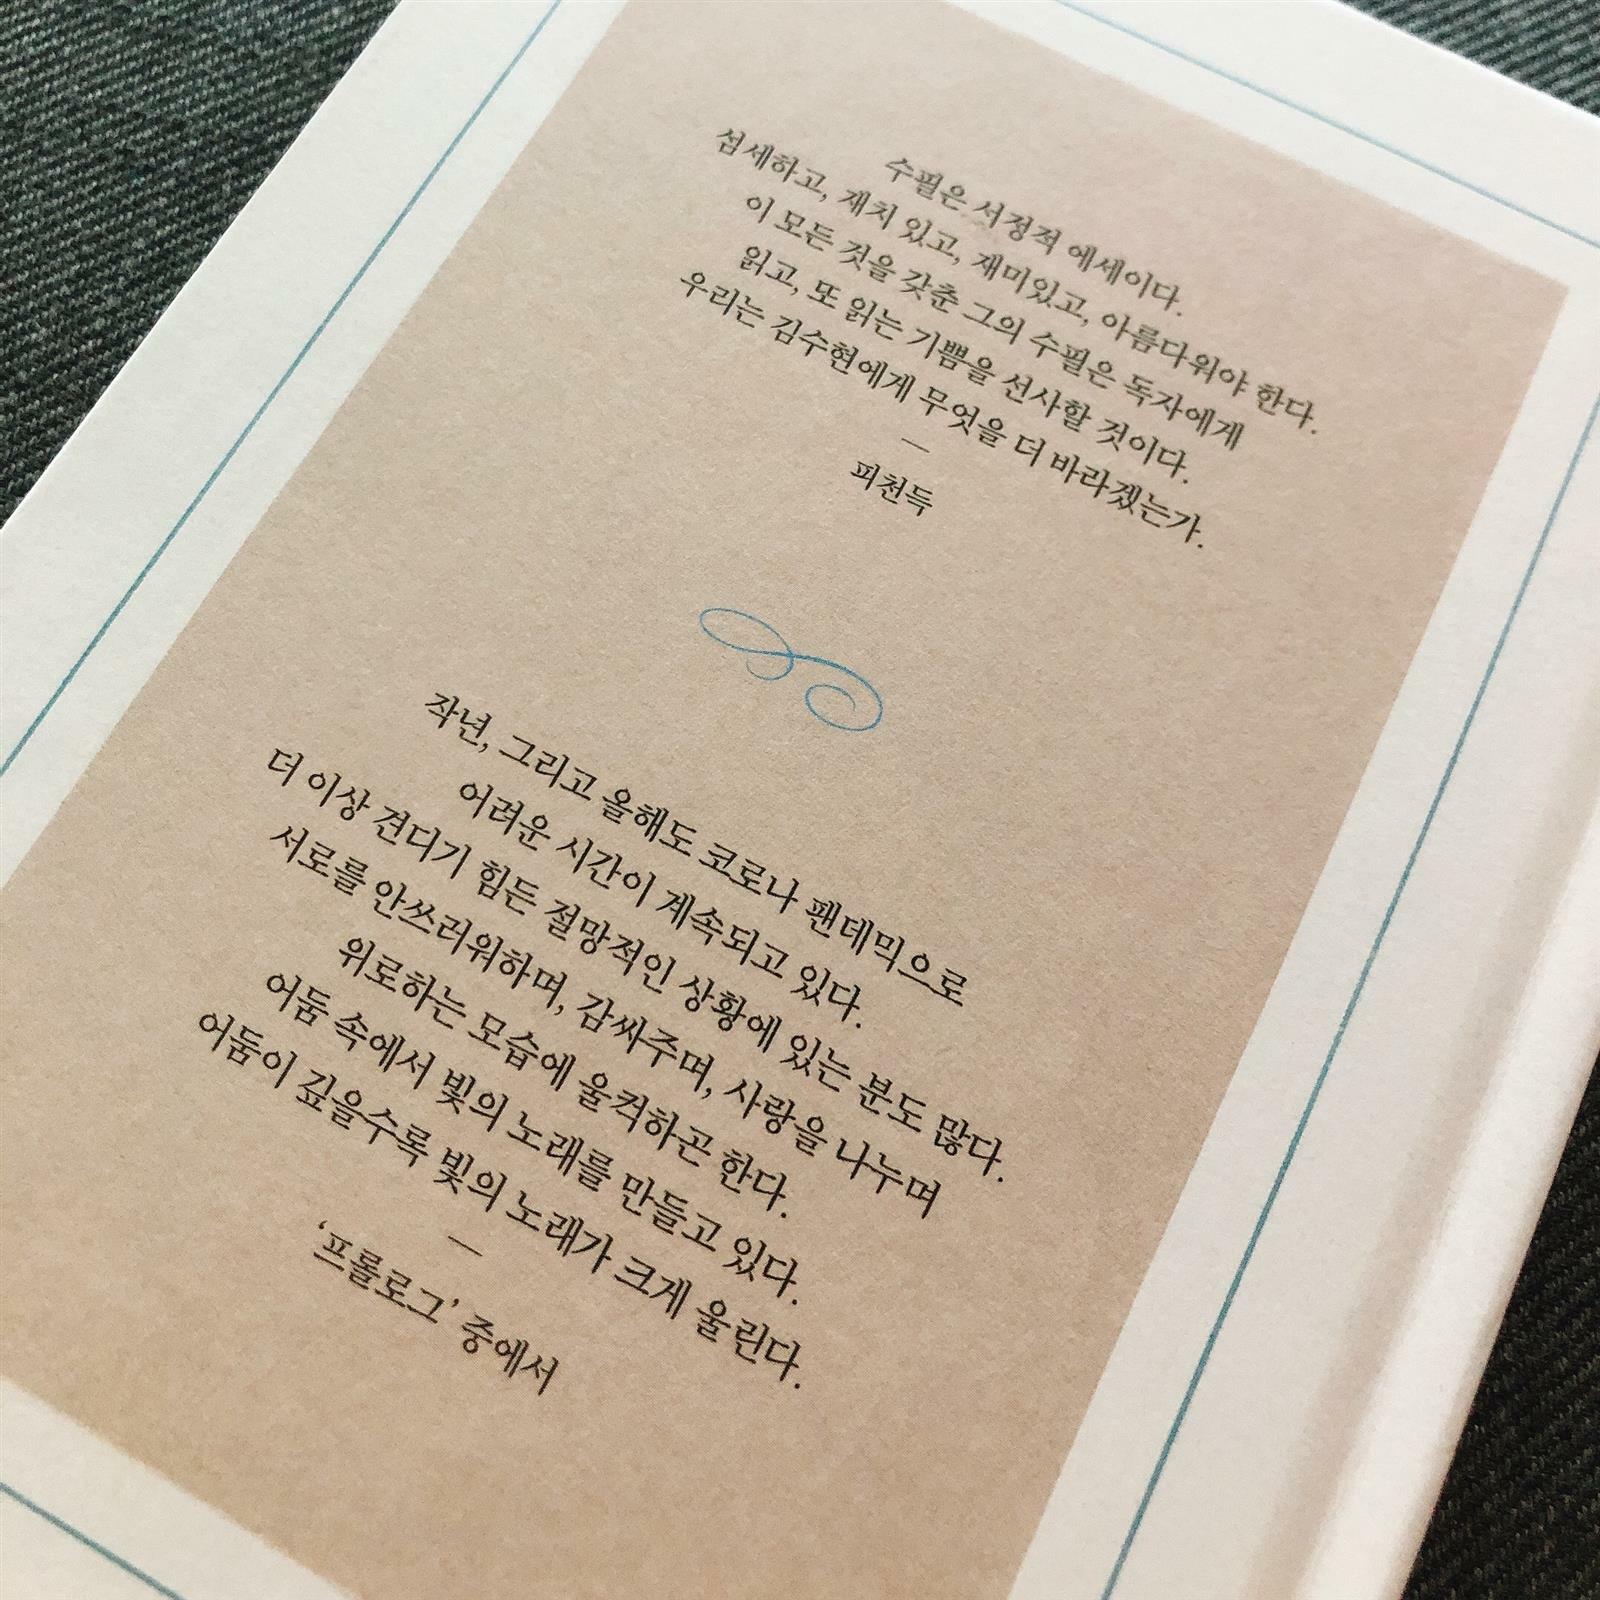 수필은 서정적 에세이다.
섬세하고, 재치 있고, 재미있고, 아름다워야 한다.
이 모든 것을 갖춘 그의 수필은 독자에게
읽고, 또 읽는 기쁨을 선사할 것이다.
우리는 김수현에게 무엇을 더 바라겠는가.
—
피천득
작년, 그리고 올해도 코로나 팬데믹으로
어려운 시간이 계속되고 있다.
더 이상 견디기 힘든 절망적인 상황에 있는 분도 많다.
서로를 안쓰러워하며, 감싸주며, 사랑을 나누며
위로하는 모습에 울컥하곤 한다.
어둠 속에서 빛의 노래를 만들고 있다.
어둠이 깊을수록 빛의 노래가 크게 울린다.
—
‘프롤로그’ 중에서